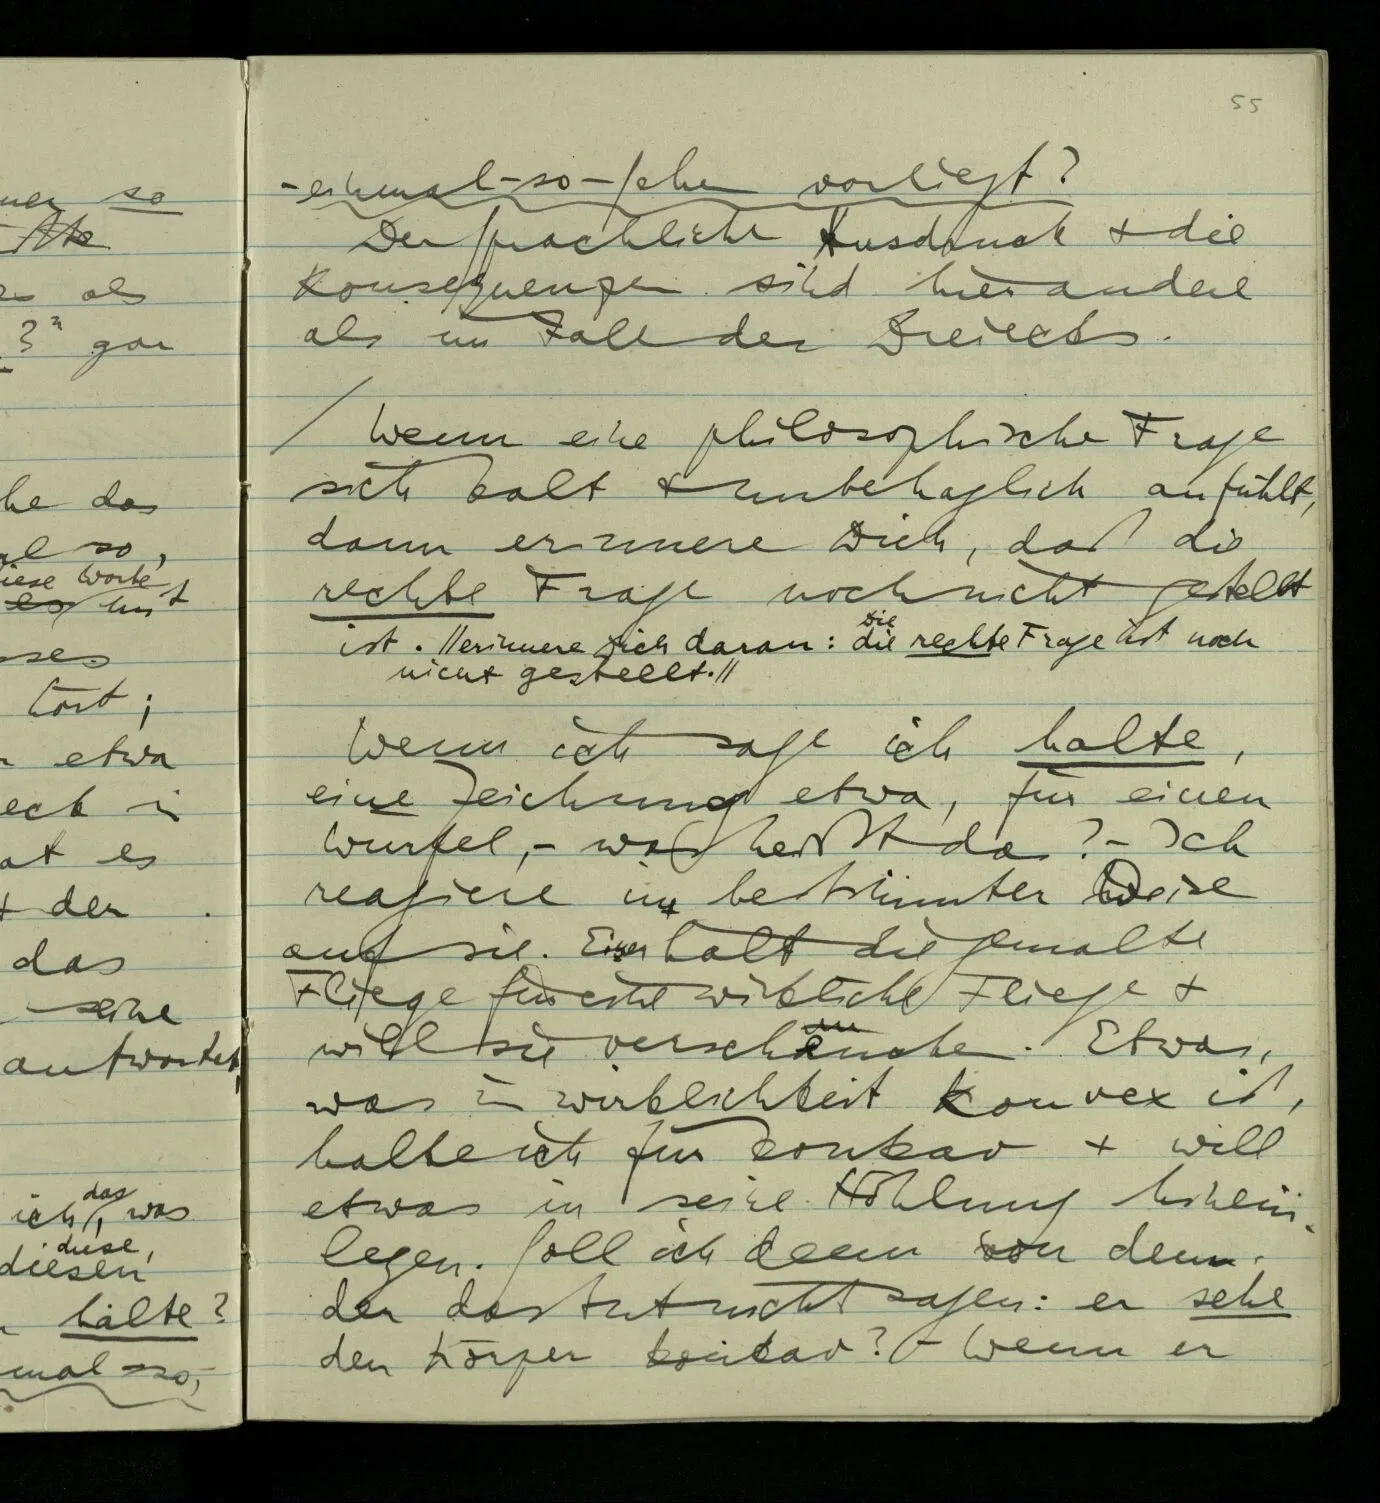 ner so
es als
?" gar
he das
al so,
diese Worte
es mit
sses
hört;
etwa
eck in
at es
+ der
das
seine
antwortet,
das
ich, was
diese,
diesen
halte?
mal-so,-
55
-einmal-so-sehen vorliegt?
Der sprachliche Ausdruck + die
Konsequenzen sind hier andere
als im Falle des Dreiecks.
/ Wenn eine philosophische Frage
sich kalt + unbehaglich anfühlt,
dann erinnere Dich, daß die
rechte Frage noch nicht gestellt
ist. //erinnere Dich daran: die rechte Frage ist noch
Die
nicht gestellt.//
Wenn ich sage ich halte,
eine Zeichnung etwa, für einen
Würfel,- was heißt das?- Ich
reagiere in bestimmter Weise
auf sie. Einer hält die gemalte
Fliege für eine wirkliche Fliege +
will sie verscheuchen. Etwas,
was in Wirklichkeit konvex ist,
halte ich für konkav + will
etwas in seine Höhlung hinein-
legen. Soll ich denn von dem,
der das tut nicht sagen: er sehe
den Körper konkav? - Wenn er